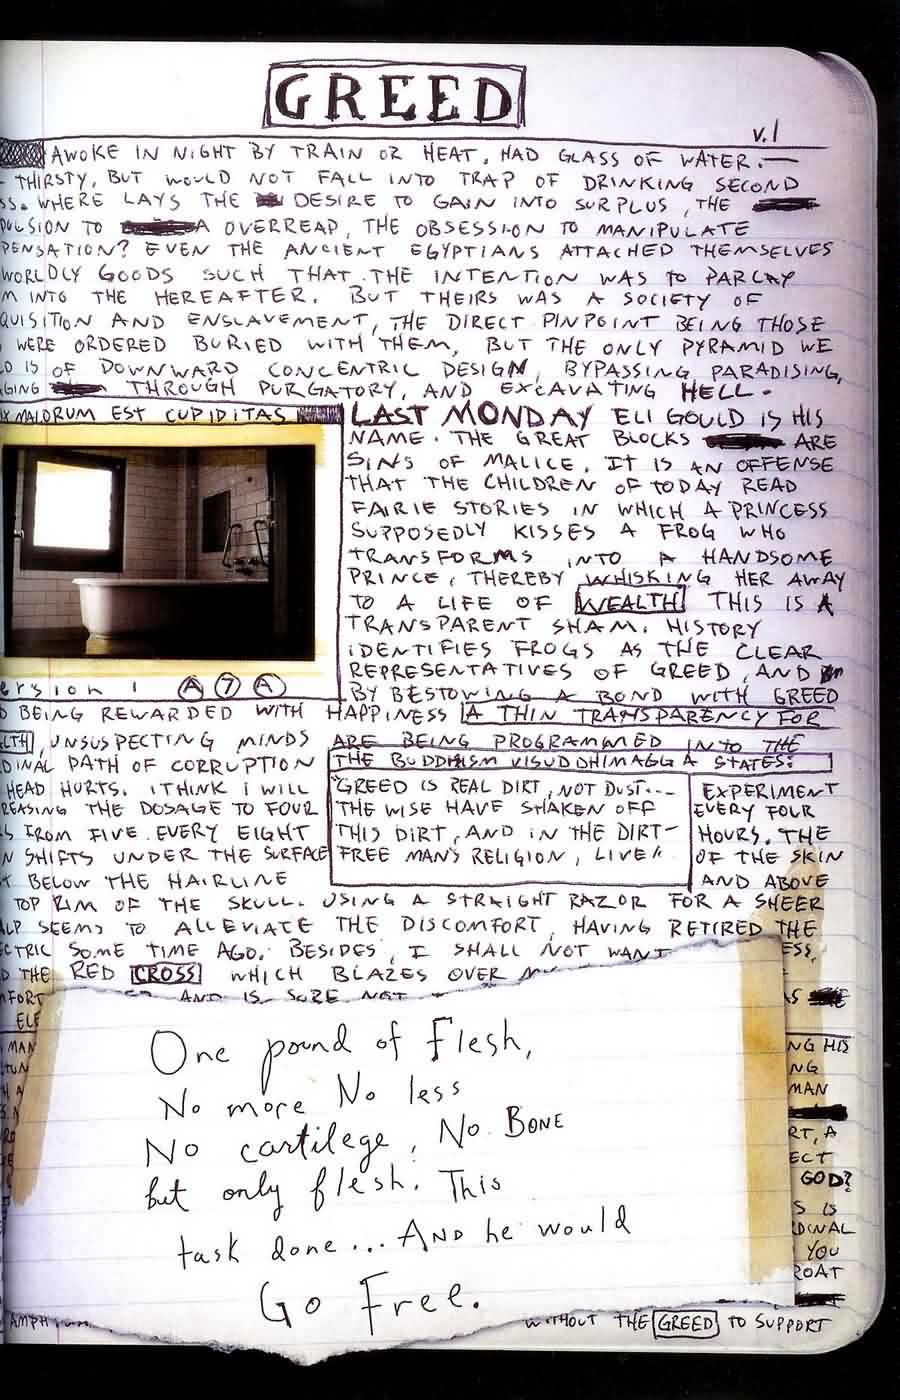 GREED
v.1
AWOKE IN NIGHT BY TRAIN OR HEAT. HAD GLASS OF WATER.
THIRSTY, BUT WOULD NOT FALL INTO TRAP OF DRINKING SECOND
SS. WHERE LAYS THE DESIRE TO GAIN INTO SURPLUS, THE
PULSION TO A OVERREAP, THE OBSESSION TO MANIPULATE
PENSATION? EVEN THE ANCIENT EGYPTIANS ATTACHED THEMSELVES
WORLDLY GOODS SUCH THAT THE INTENTION WAS TO PARLAY
M INTO THE HEREAFTER. BUT THEIRS WAS A SOCIETY OF
QUISITION AND ENSLAVEMENT, THE DIRECT PINPOINT BEING THOSE
WERE ORDERED BURIED WITH THEM, BUT THE ONLY PYRAMID WE
D IS OF DOWNWARD CONCENTRIC DESIGN, BYPASSING PARADISING,
GING THROUGH PURGATORY, AND EXCAVATING HELL.
IX MALORUM EST CUPIDITAS
LAST MONDAY ELI GOULD IS HIS
NAME. THE GREAT BLOCKS ARE
SINS OF MALICE. IT IS AN OFFENSE
THAT THE CHILDREN OF TODAY READ
FAIRIE STORIES IN WHICH A PRINCESS
SUPPOSEDLY KISSES A FROG WHO
TRANSFORMS INTO A HANDSOME
PRINCE, THEREBY WHISKING HER AWAY
TO A LIFE OF WEALTH THIS IS A
TRANSPARENT SHAM. HISTORY
IDENTIFIES FROGS AS THE CLEAR
REPRESENTATIVES OF GREED, AND
BY BESTOWING A BOND WITH GREED
ersion 1 A 7 A
D BEING REWARDED WITH HAPPINESS A THIN TRANSPARENCY FOR
LTH, UNSUSPECTING MINDS ARE BEING PROGRAMMED INTO THE
DINAL PATH OF CORRUPTION
THE BUDDHISM VISUDDHIMAGGA STATES:
"GREED IS REAL DIRT, NOT DUST...
THE WISE HAVE SHAKEN OFF
THIS DIRT, AND IN THE DIRT-
FREE MAN'S RELIGION, LIVE".
HEAD HURTS. I THINK I WILL EXPERIMENT
REASING THE DOSAGE TO FOUR EVERY FOUR
S FROM FIVE EVERY EIGHT HOURS. THE
N SHIFTS UNDER THE SURFACE OF THE SKIN
T BELOW THE HAIRLINE AND ABOVE
TOP RIM OF THE SKULL. USING A STRAIGHT RAZOR FOR A SHEER
ALP SEEMS TO ALLEVIATE THE DISCOMFORT, HAVING RETIRED THE
ECTRIC SOME TIME AGO. BESIDES, I SHALL NOT WANT ESS,
D THE RED CROSS WHICH BLAZES OVER
MFORT AND IS SORE NOT AS
ELF
MAN NG HIS
TUN NG
H A MAN
RT, A
ECT
GOD?
S IS
RDINAL
YOU
ROAT
One pound of Flesh,
No more No less
No cartilege, No BONE
but only flesh. This
task done... AND he would
Go Free.
AMPH WITHOUT THE GREED TO SUPPORT